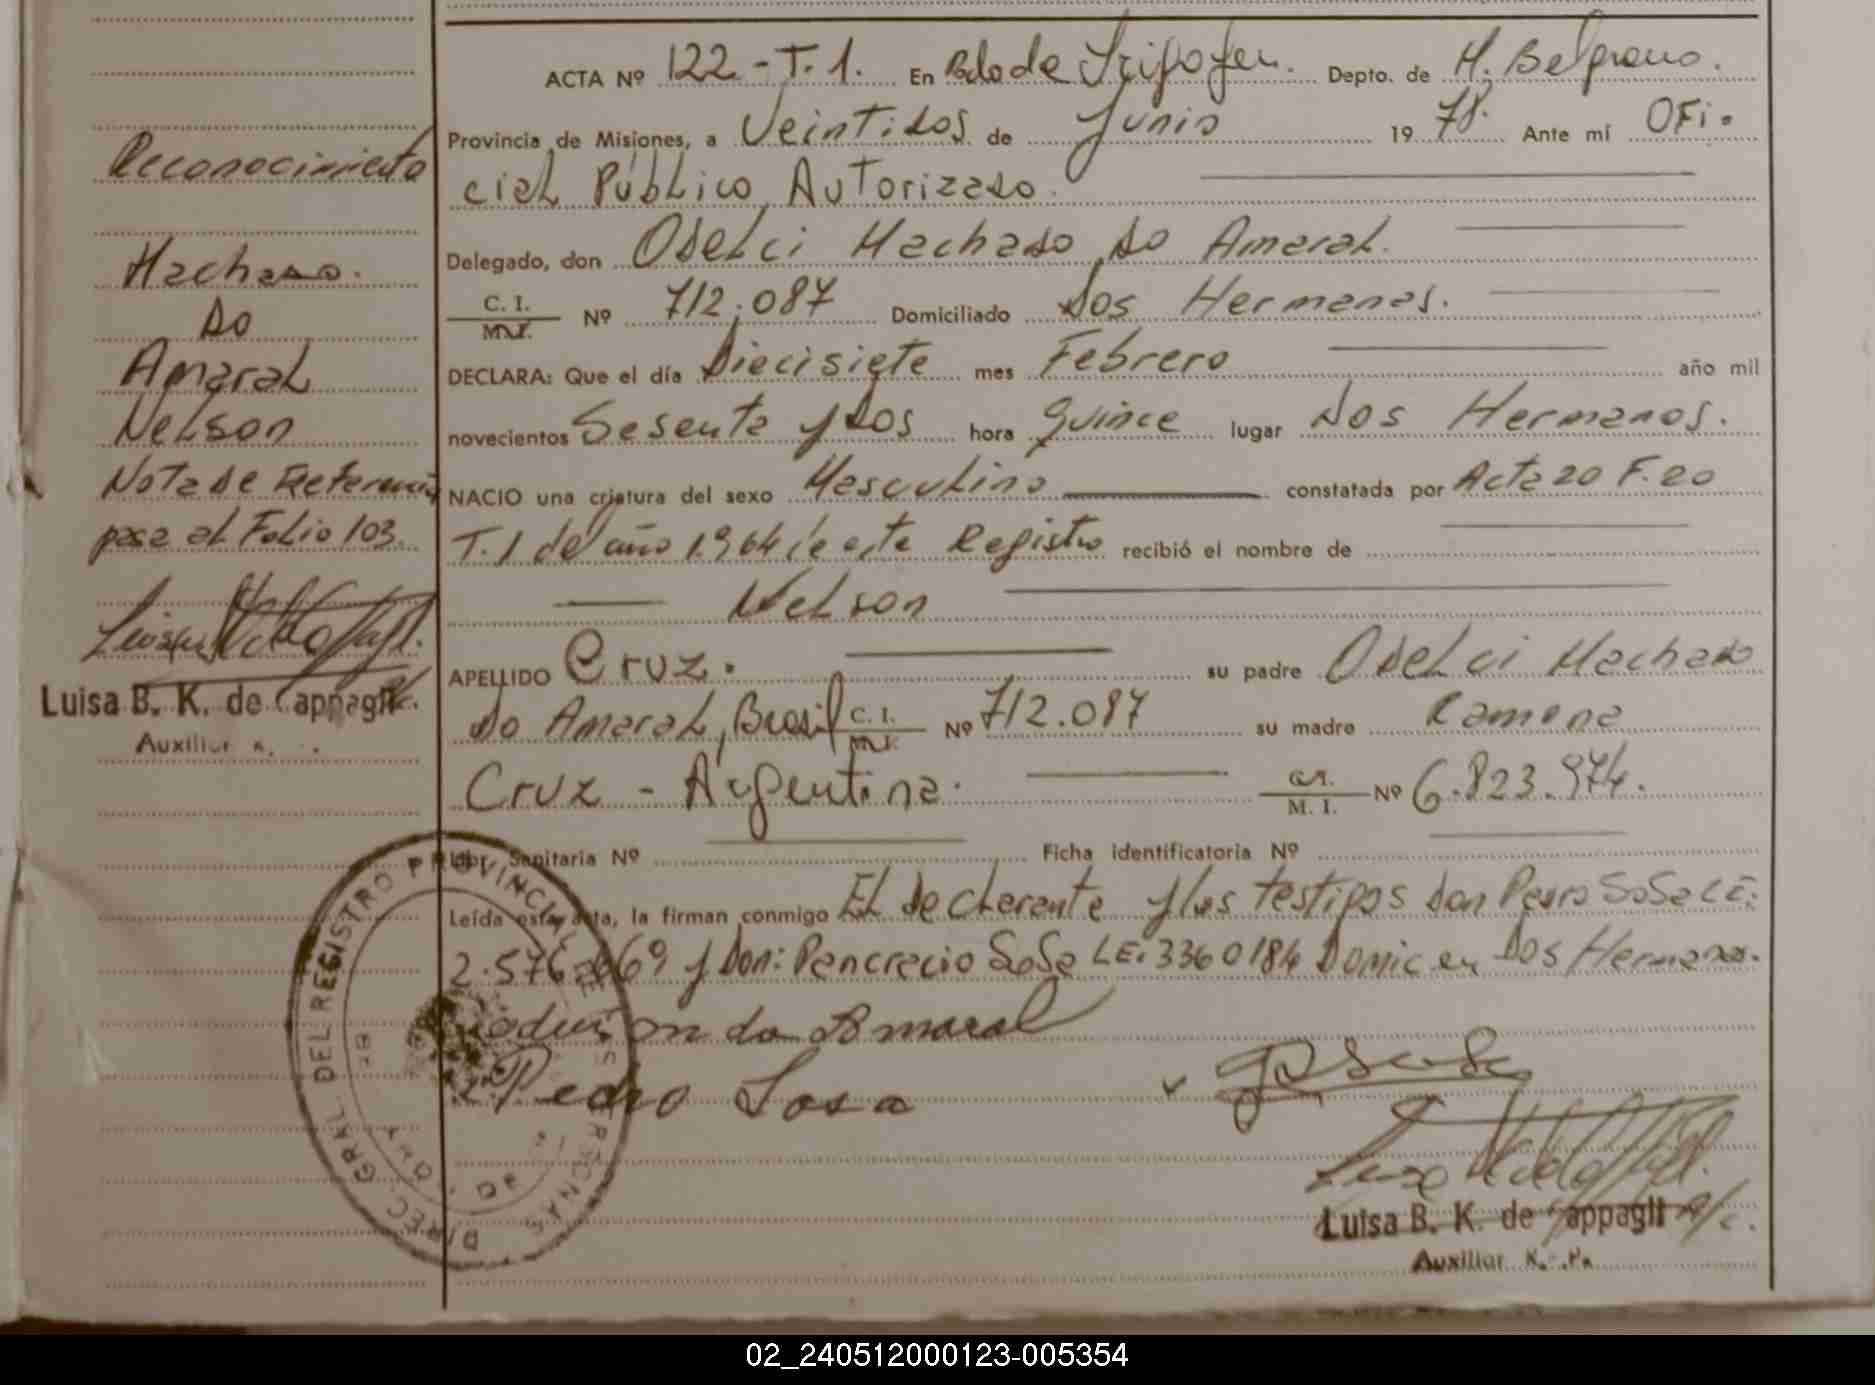 ACTA Nº 122 - T. 1. En Bdo de Irigoyen. Depto. de M. Belgrano.
Provincia de Misiones, a Veintidos de Junio 19 78. Ante mí OFi-
ciaL Público Autorizado.
Delegado, don OdeLci Machado do AmaraL.
C. I.
M.I. Nº 712.087 Domiciliado Dos Hermanas.
DECLARA: Que el día Diecisiete mes Febrero año mil
novecientos Sesenta y dos hora Quince lugar Dos Hermanas.
NACIO una criatura del sexo Masculino constatada por Acta 20 F. 20
T. 1 del año 1.964 de este Registro recibió el nombre de
NeLson
APELLIDO Cruz. su padre OdeLci Machado
do AmaraL, Brasil C. I.
M.I. Nº 712.087 su madre Ramona
Cruz - Argentina. C.I.
M. I. Nº 6.823.974.
Libr. Sanitaria Nº Ficha identificatoria Nº
Leída esta acta, la firman conmigo EL decLarante y los testigos don Pedro Sosa LE:
2.576.669 y Don: Pancracio Sosa LE. 3360184 Domic en Dos Hermanas.
da Amaral
Pedro Sosa
Luisa B. K. de Cappagli
Auxiliar
Reconocimiento
Machado.
do
AmaraL
NeLson
Nota de Referencia
pasa al Folio 103.
Luisa B. K. de Cappagli
Auxiliar
DIREC. GRAL. DEL REGISTRO PROVINCIAL DE LAS PERSONAS
02_240512000123-005354